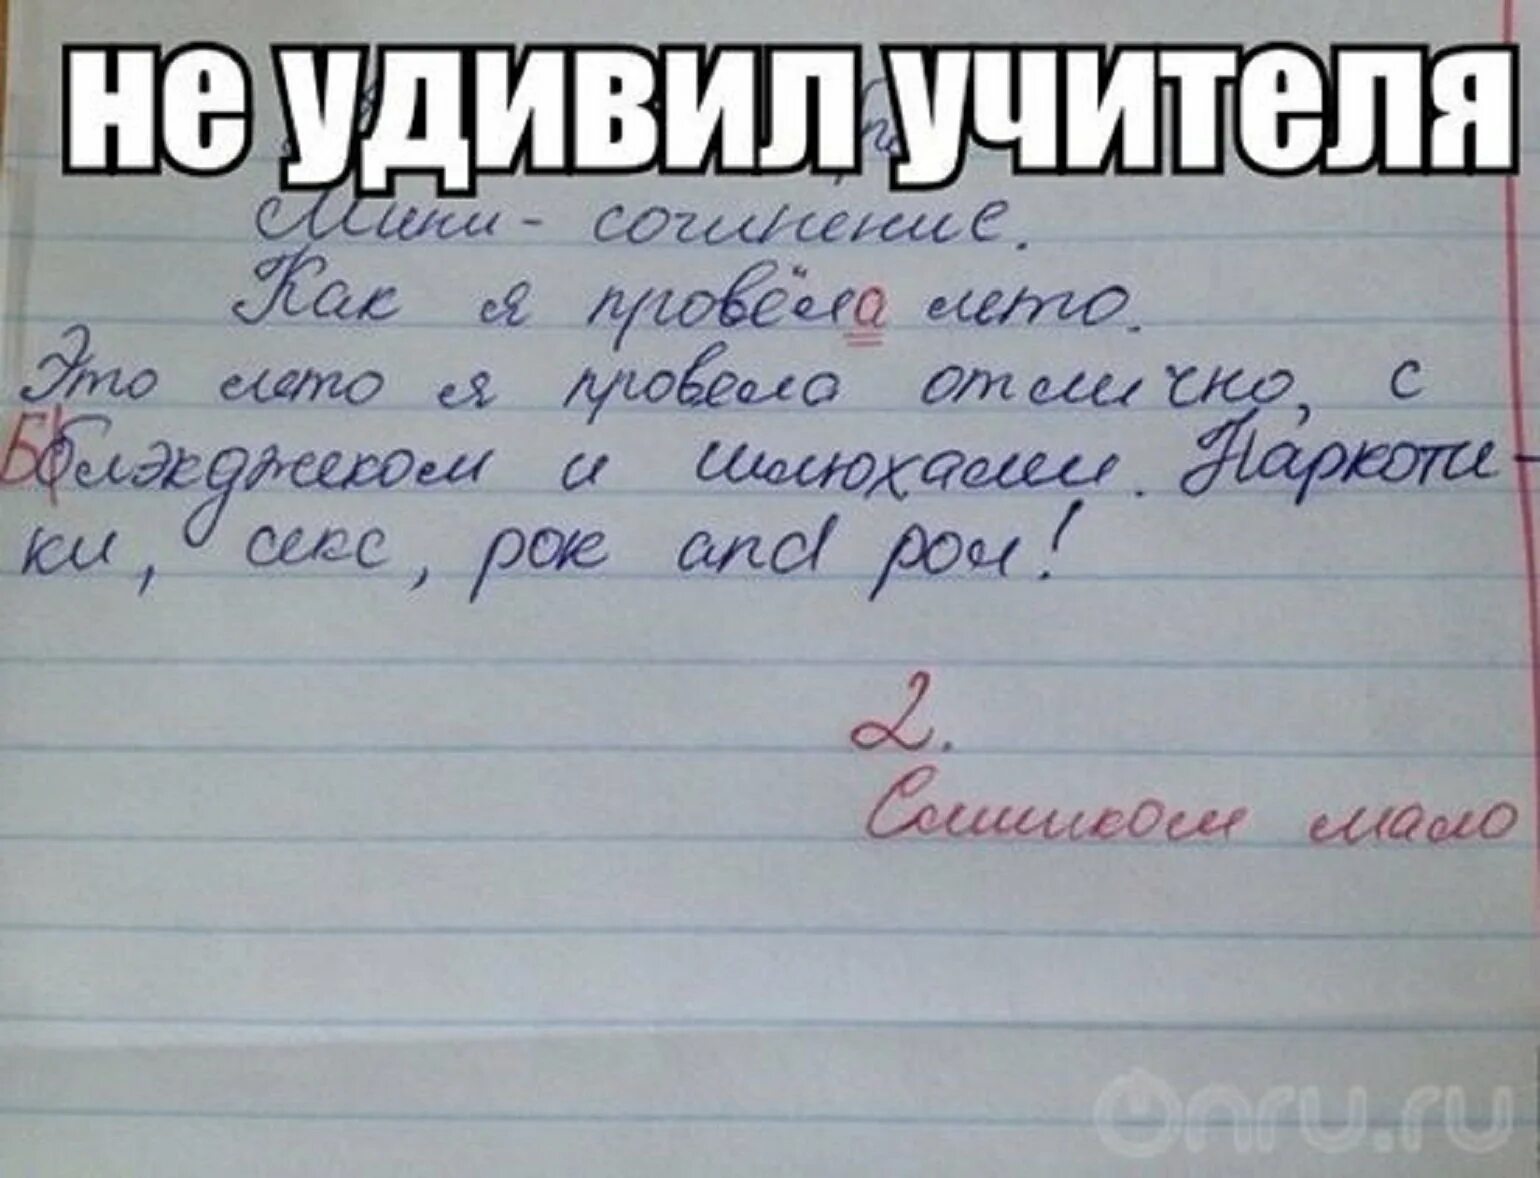 не удивил учителя
Мини-сочинение.
Как я провёла лето.
Это лето я провела отлично, с
Бблэкджеком и шлюхами. Наркоти-
ки, секс, рок and рол!
2.
Слишком мало
Onru.ru